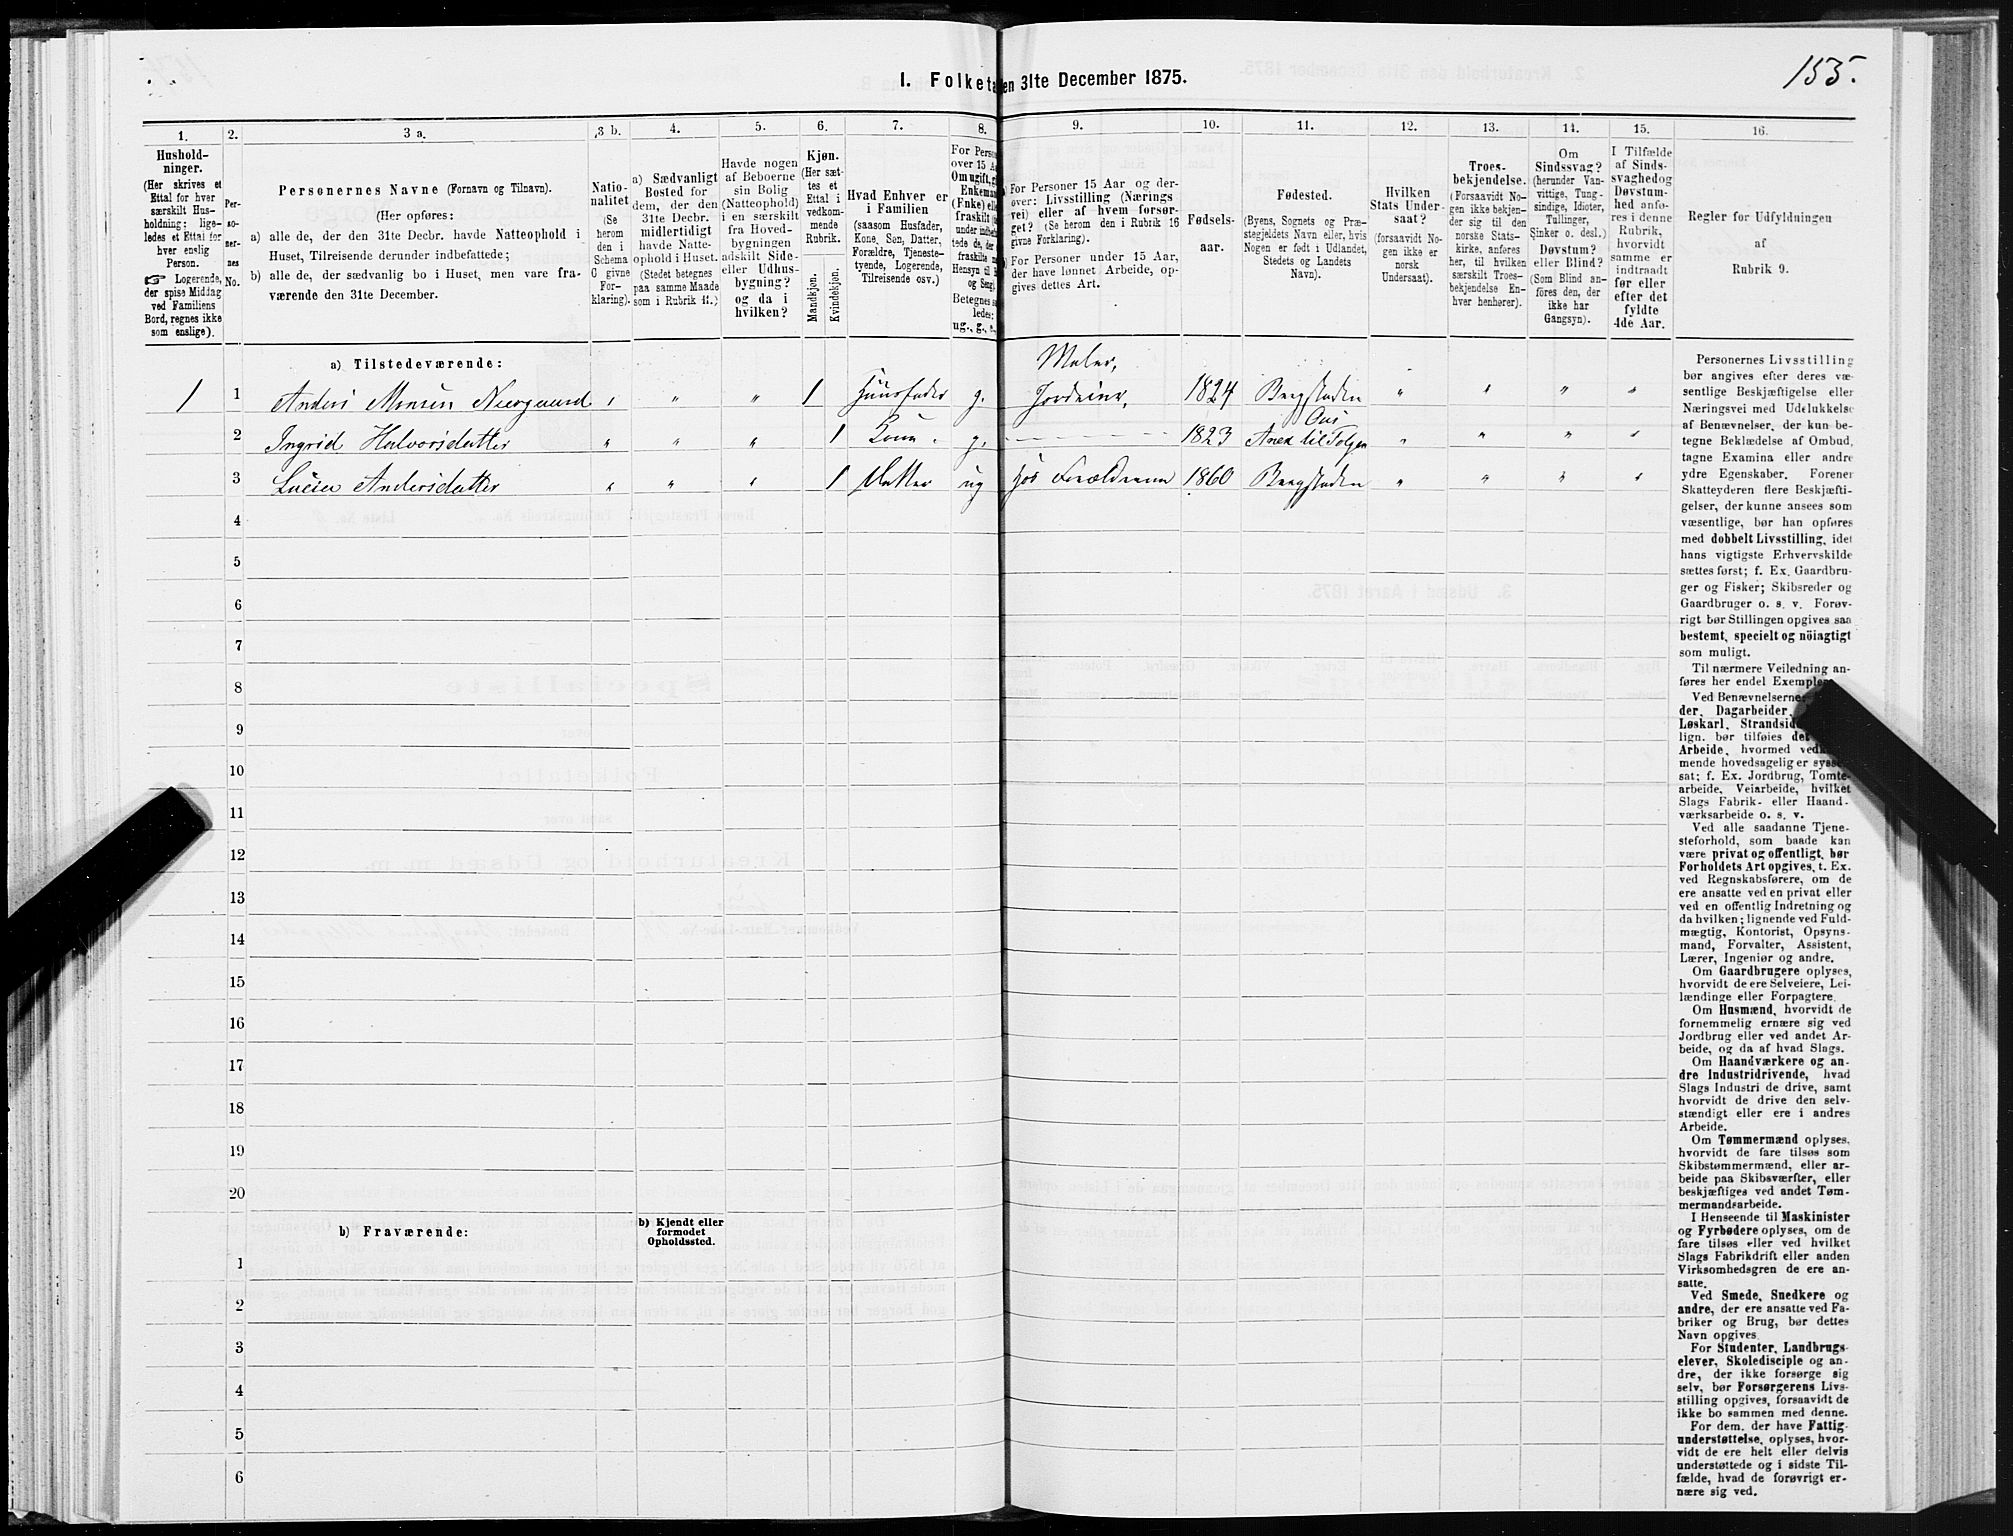 155.
I. Folketa en 31te December 1875.
1. 2. 3 a. 3 b. 4. 5. 6. 7. 8. 9. 10. 11. 12. 13. 14. 15. 16.
Hushold-
ninger.
(Her skrives et
Ettal for hver
særskilt Hus-
holdning; lige-
ledes et Ettal for
hver enslig
Person.
☞ Logerende,
der spise Middag
ved Familiens
Bord, regnes ikke
som enslige).
Per-
so-
ner-
nes
No.
Personernes Navne (Fornavn og Tilnavn).
(Her opføres:
a) alle de, der den 31te Decbr. havde Natteophold i
Huset, Tilreisende derunder indbefattede;
b) alle de, der sædvanlig bo i Huset, men vare fra-
værende den 31te December.
Natio-
nalitet
(Se
herom
den i
Schema
C givne
For-
klaring).
a) Sædvanligt
Bosted for
dem, der den
31te Decbr.
midlertidigt
havde Natte-
ophold i Huset.
(Stedet betegnes
paa samme Maade
som i Rubrik 11.)
Havde nogen
af Beboerne
sin Bolig
(Natteophold)
i en særskilt
fra Hoved-
bygningen
adskilt Side-
eller Udhus-
bygning?
og da i
hvilken?
Kjøn.
(Her sæt-
tes et
Ettal i
vedkom-
mende
Rubrik.
Mandkjøn.
Kvindekjøn.
Hvad Enhver er
i Familien
(saasom Husfader,
Kone, Søn, Datter,
Forældre, Tjeneste-
tyende, Logerende,
Tilreisende osv.)
For Perso
over 15 A
Om ugift, g
Enkeman
(Enke) ell
fraskilt
under indbef
tede de, der
fraskilte
Hensyn til
og Seng).
Betegnes s
ledes:
ug., g., e.,
For Personer 15 Aar og der-
over: Livsstilling (Nærings
vei) eller af hvem forsør-
get? (Se herom den i Rubrik 16
givne Forklaring).
For Personer under 15 Aar,
der have lønnet Arbeide, op-
gives dettes Art.
Fødsels-
aar.
Fødested.
(Byens, Sognets og Præ-
stegjeldets Navn eller, hvis
Nogen er født i Udlandet,
Stedets og Landets
Navn).
Hvilken
Stats Under-
saat?
(forsaavidt No-
gen ikke er
norsk
Undersaat).
Troes-
bekjendelse.
(Forsaavidt No-
gen ikke bekjen-
der sig til den
norske Stats-
kirke, anføres
her, til hvilken
særskilt Troes-
bekjendelse En-
hver henhører).
Om
Sindssvag?
(herunder Van-
vittige, Tung-
sindige, Idioter,
Tullinger,
Sinker o. desl.)
Døvstum?
eller Blind?
(Som Blind an-
føres den, der
ikke har
Gangsyn).
I Tilfælde
af Sinds-
svaghed og
Døvstum-
hed anfø-
res i denne
Rubrik,
hvorvidt
samme er
indtraadt
før eller
efter det
fyldte
4de Aar.
Regler for Udfyldningen
af
Rubrik 9.
a) Tilstedeværende:
Maler,
1 1 Anders Monsen Neergaard " " " 1 Huusfader g. Jordeier, 1824 Bergstaden " " " "
Ous
2 Ingrid Halvorsdatter " " " 1 Kone g. 1823 Anex til Tolgen " " " "
3 Lucie Andersdatter " " " 1 Datter ug hos Forældrene 1860 Bergstaden " " " "
4
5
6
7
8
9
10
11
12
13
14
15
16
17
18
19
20
b) Fraværende:
b) Kjendt eller
formodet
Opholdssted.
1
2
3
4
5
6
Personernes Livsstilling
bør angives efter deres væ-
sentlige Beskjæftigelse eller
Næringsvei med Udelukkelse
af Benævnelser, der kun be-
tegne Beklædelse af Ombud,
tagne Examina eller andre
ydre Egenskaber. Forener
Skatteyderen flere Beskjæfti-
gelser, der kunne ansees som
væsentlige, bør han opføres
med dobbelt Livsstilling, idet
hans vigtigste Erhvervskilde
sættes først; f. Ex. Gaardbru-
ger og Fisker; Skibsreder og
Gaardbruger o. s. v. Forøv-
rigt bør Stillingen opgives saa
bestemt, specielt og nöiagtigt
som muligt.
Til nærmere Veiledning an-
føres her endel Exempler
Ved Benævnelserne:
der, Dagarbeider,
Løskarl, Strandsid
lign. bør tilføies det
Arbeide, hvormed vedk
mende hovedsagelig er sysse
sat; f. Ex. Jordbrug, Tomte-
arbeide, Veiarbeide, hvilket
Slags Fabrik- eller Haand-
værksarbeide o. s. v.
Ved alle saadanne Tjene-
steforhold, som baade kan
være privat og offentligt, bør
Forholdets Art opgives, t. Ex.
ved Regnskabsførere, om de
ere ansatte ved en privat eller
ved en offentlig Indretning og
da hvilken; lignende ved Fuld-
mægtig, Kontorist, Opsyns-
mand, Forvalter, Assistent,
Lærer, Ingeniør og andre.
Om Gaardbrugere oplyses,
hvorvidt de ere Selveiere, Lei-
lændinge eller Forpagtere.
Om Husmænd, hvorvidt de
fornemmelig ernære sig ved
Jordbrug eller ved andet Ar-
beide, og da af hvad Slags.
Om Haandværkere og an-
dre Industridrivende, hvad
Slags Industri de drive, samt
hvorvidt de drive den selv-
stændigt eller ere i andres
Arbeide.
Om Tømmermænd oplyses,
hvorvidt de fare tilsøs som
Skibstømmermænd, eller ar-
beide paa Skibsværfter, eller
beskjæftiges ved andet Tøm-
mermandsarbeide.
I Henseende til Maskinister
og Fyrbødere oplyses, om de
fare tilsøs eller ved hvilket
Slags Fabrikdrift eller anden
Virksomhedsgren de ere an-
satte.
Ved Smede, Snedkere og
andre, der ere ansatte ved Fa-
briker og Brug, bør dettes
Navn opgives.
For Studenter, Landbrugs-
elever, Skoledisciple og an-
dre, der ikke forsørge sig
selv, bør Forsørgerens Livs-
stilling opgives, forsaavidt de
ikke bo sammen med denne.
For dem, der have Fattig-
understøttelse, oplyses, hvor-
vidt de ere helt eller delvis
understøttede og i sidste Til-
fælde, hvad de forøvrigt er-
nære sig ved.